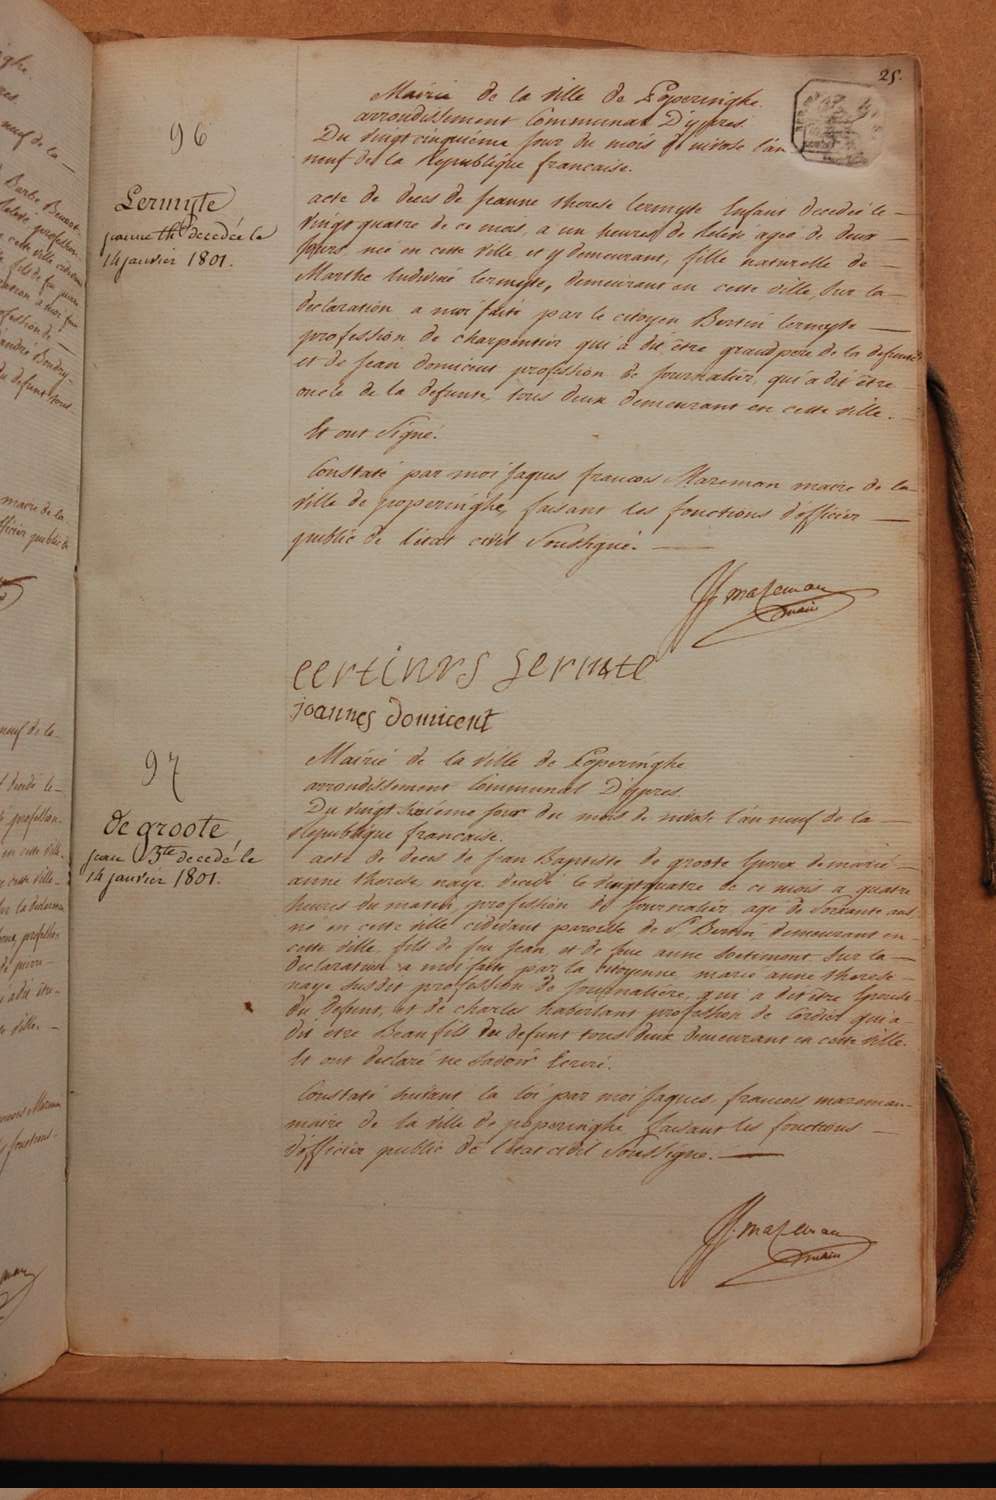 25.
96
Lermyte
jeanne th.se decedée le
14 janvier 1801.
Mairie de la ville de Poperinghe.
arrondissement Communal D'ypres.
Du vingt cinquiéme jour du mois de nivose l'an
neuf de la Republique francaise.
acte de deces de Jeanne therese lermyte Enfant decedée le
vingt quatre de ce mois, a un heures de relevé ageé de deux
jours né en cette ville et y demeurant, fille naturelle de
Marthe ludwine lermyte, demeurant en cette ville, Sur la
declaration a moi faite par le citoyen Bertin lermyte
profession de charpentier qui a dit être grand pere de la defunte
et de jean domicent profession de Journalier, qui a dit être
oncle de la defunte, tous deux demeurant en cette ville.
Et ont Signé.
Constaté par moi jaques francois Mazeman maire de la
ville de poperinghe, faisant les fonctions d'officier
public de l'etat civil Soussigné.
JF mazeman
maire
joannes domicent
97
De groote
jean B.te decedé le
14 janvier 1801.
Mairie de la ville de Poperinghe
arrondissement Communal D'ypres.
Du vingt Sixiéme jour du mois de nivose l'an neuf de la
Republique francaise.
acte de deces de Jean Baptiste de groote Epoux de marie
anne therese naye decedé le vingt quatre de ce mois a quatre
heures du matin profession de Journalier, agé de Soixante ans
né en cette ville cidevant paroisse de S.t Bertin demeurant en
cette ville, fils de feu jean et de feue anne Sur la
declaration a moi faite par la Citoyenne marie anne therese
naye susdit profession de journaliére, qui a dit être Epouse
du defunt, et de charles profession de Cordier qui a
dit etre Beaufils du defunt tous deux demeurant en cette ville.
Et ont declaré ne Savoir Ecrire.
Constaté suivant la loi par moi Jaques francois mazeman
maire de la ville de poperinghe faisant les fonctions
d'officier public de l'etat civil Soussigné.
JF mazeman
maire